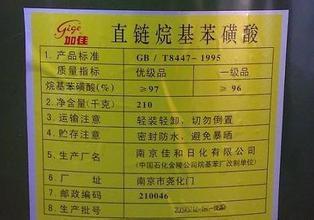 Gige
加佳
直链烷基苯磺酸
1. 产品标准 GB/T8447-1995
质量指标 优级品 一级品
烷基苯磺酸(%) ≥97 ≥96
2. 净含量(千克) 210
3. 运输注意 轻装轻卸, 切勿倒置
4. 贮存注意 密封防水, 避免暴晒
5. 生产厂名 南京佳和日化有限公司
(中国石化金陵公司烷基苯厂改制单位)
6. 厂 址 南京市尧化门
7. 邮政编码 210046
8. 生产批号